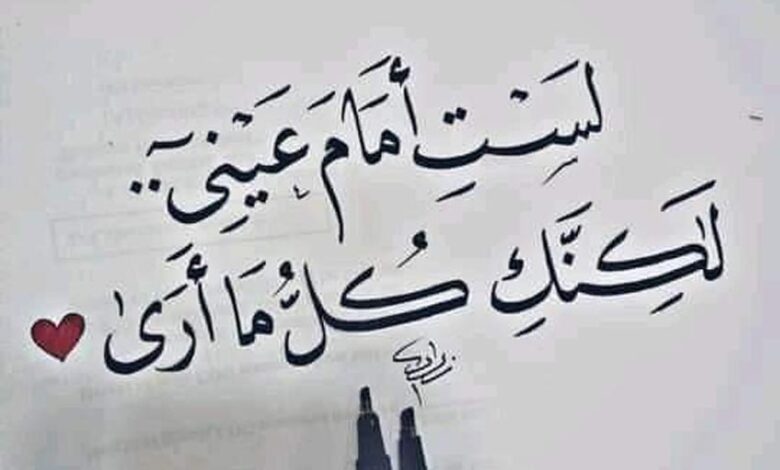 لَسْتِ أَمَامَ عَيْنِي..
لَٰكِنَّكِ كُلُّ مَا أَرَىٰ